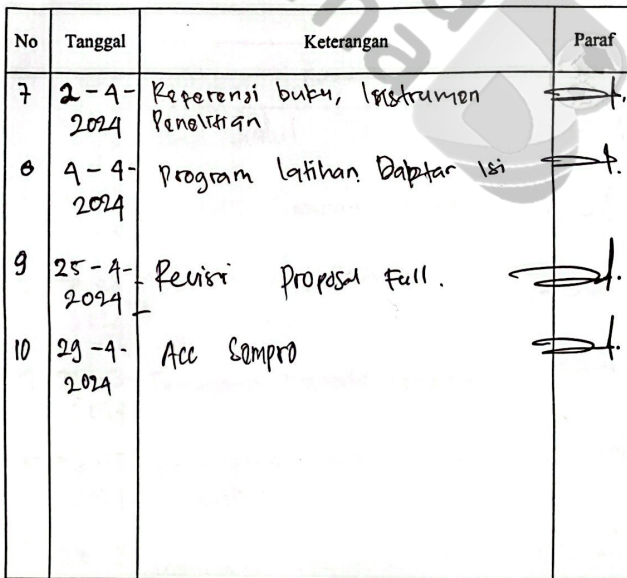 No Tanggal Keterangan Paraf
7 2-4- Referensi buku, Instrumen
2024 Penelitian
8 4-4- Program latihan Daptar Isi
2024
9 25-4- Revisi Proposal Full.
2024
10 29-4- Acc Sempro
2024